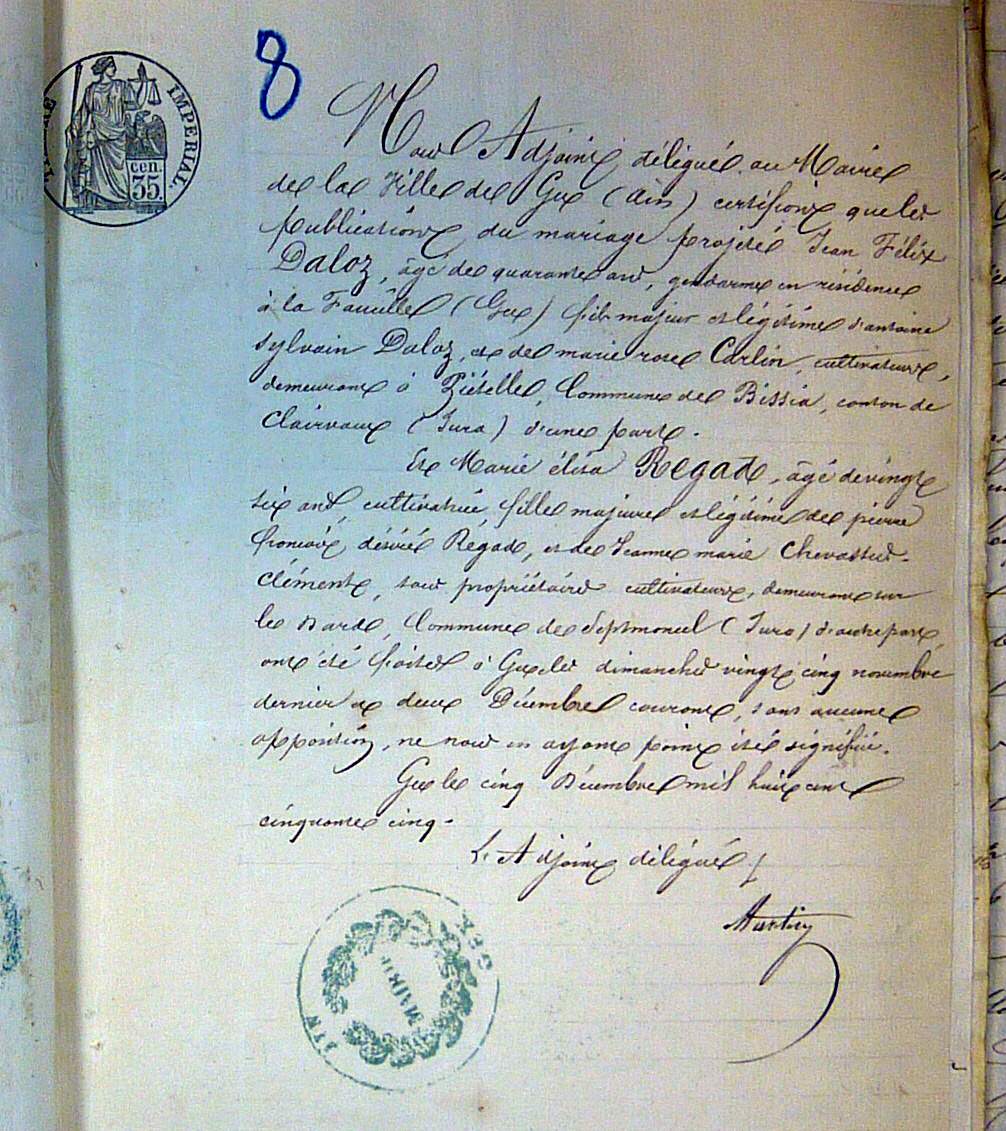 8
IMPERIAL.
cen.
35.
Nous Adjoint délégué au Maire
de la Ville de Gex (Ain) certifions que les
publications du mariage projeté Jean Félix
Daloz, âgé de quarante ans, gendarme en résidence
à la Faucille (Gex) fils majeur et légitime d'antoine
sylvain Daloz, et de marie rose Carlin, cultivateurs,
demeurant à Piételle, Commune de Bissia, canton de
Clairvaux (Jura) d'une part.
Et Marie élisa Regad, âgé de vingt
six ans, cultivatrice, fille majeure et légitime de pierre
françois désiré Regad, et de Jeanne marie Chevassus-
clément, tous propriétaires cultivateurs, demeurant sur
les Bards, Commune de Septmoncel (Jura) d'autre part,
ont été faites à Gex les dimanches vingt cinq novembre
dernier et deux Décembre courant, sans aucune
opposition, ne nous en ayant point été signifié.
Gex le cinq Décembre mil huit cent
cinquante cinq.
L'Adjoint délégué
MAIRIE
GEX
AIN